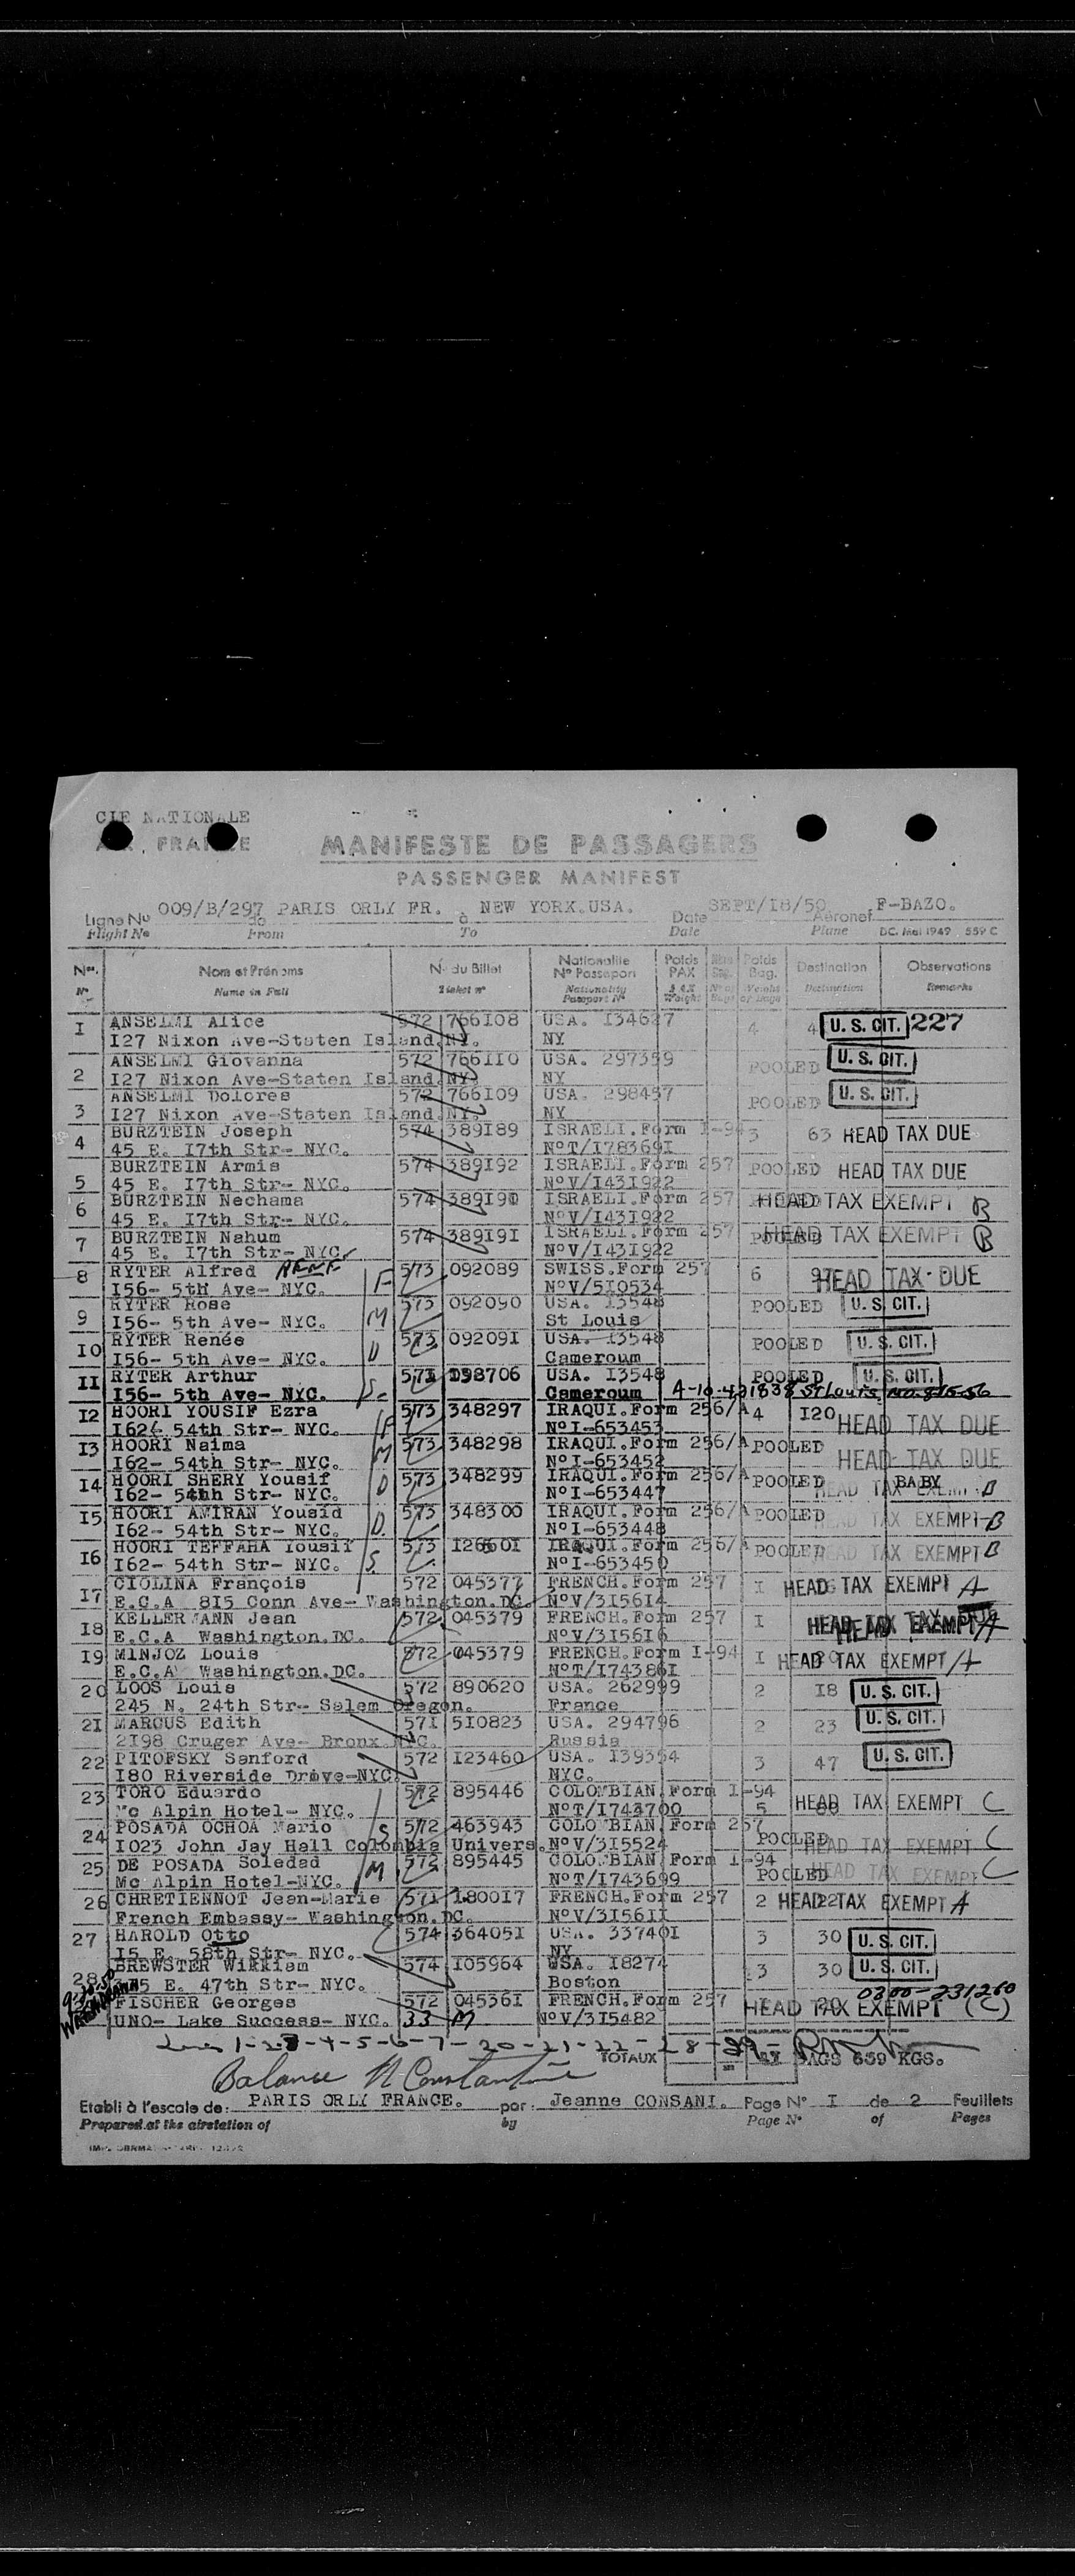 CIE NATIONALE
AIR FRANCE
MANIFESTE DE PASSAGERS
PASSENGER MANIFEST
Ligne No 009/B/297 de PARIS ORLY FR. à NEW YORK.USA. Date SEPT/I8/50 Aéronef F-BAZO.
Flight No From To Date Plane DC. Mai 1949 559 C
Nos. Nom et Prénoms No du Billet Nationalité No Passeport Poids PAX Poids Bag. Destination Observations
No Name in Full Ticket no Nationality Passport No PAX Weight No of Bags Weight of Bags Destination Remarks
I ANSELMI Alice 572 766I08 USA. I34627 4 U. S. CIT. 227
I27 Nixon Ave-Staten Island.NY. NY
2 ANSELMI Giovanna 572 766II0 USA. 297359 POOLED U. S. CIT.
I27 Nixon Ave-Staten Island.NY. NY
3 ANSELMI Dolores 572 766I09 USA. 298457 POOLED U. S. CIT.
I27 Nixon Ave-Staten Island.NY. NY
4 BURZTEIN Joseph 574 389I89 ISRAELI.Form I-94 3 63 HEAD TAX DUE
45 E. I7th Str- NYC. NoT/I78369I
5 BURZTEIN Armis 574 389I92 ISRAELI.Form 257 POOLED HEAD TAX DUE
45 E. I7th Str- NYC. NoV/I43I922
6 BURZTEIN Nechama 574 389I90 ISRAELI.Form 257 HEAD TAX EXEMPT B
45 E. I7th Str- NYC. NoV/I43I922
7 BURZTEIN Nahum 574 389I9I ISRAELI.Form 257 POOLED HEAD TAX EXEMPT B
45 E. I7th Str- NYC. NoV/I43I922
8 RYTER Alfred RENE F 573 092089 SWISS.Form 257 6 HEAD TAX DUE
I56- 5th Ave- NYC. NoV/5I0534
9 RYTER Rose M 573 092090 USA. I3548 POOLED U. S. CIT.
I56- 5th Ave- NYC. St Louis
I0 RYTER Renée D 573 09209I USA. I3548 POOLED U. S. CIT.
I56- 5th Ave- NYC. Cameroum
II RYTER Arthur S. 57I I98706 USA. I3548 POOLED U. S. CIT.
I56- 5th Ave- NYC. Cameroum
I2 HOORI YOUSIF Ezra F 573 348297 IRAQUI.Form 256/A 4 I20 HEAD TAX DUE
I62- 54th Str- NYC. NoI-653453
I3 HOORI Naima M 573 348298 IRAQUI.Form 256/A POOLED HEAD TAX DUE
I62- 54th Str- NYC. NoI-653452
I4 HOORI SHERY Yousif D 573 348299 IRAQUI.Form 256/A POOLED BABY HEAD TAX EXEMPT B
I62- 54th Str- NYC. NoI-653447
I5 HOORI AMIRAN Yousid D. 573 348300 IRAQUI.Form 256/A POOLED HEAD TAX EXEMPT B
I62- 54th Str- NYC. NoI-653448
I6 HOORI TEFFAHA Yousif S. 573 I26601 IRAQUI.Form 256/A POOLED HEAD TAX EXEMPT B
I62- 54th Str- NYC. NoI-653450
I7 CIOLINA François 572 045377 FRENCH.Form 257 I HEAD TAX EXEMPT A
E.C.A 8I5 Conn Ave- Washington.DC. NoV/3I56I4
I8 KELLERMANN Jean 572 045379 FRENCH.Form 257 I HEAD TAX EXEMPT A
E.C.A Washington.DC. NoV/3I56I6
I9 MINJOZ Louis 572 045379 FRENCH.Form I-94 I HEAD TAX EXEMPT A
E.C.A Washington.DC. NoT/I74386I
20 LOOS Louis 572 890620 USA. 262999 2 I8 U. S. CIT.
245 N. 24th Str- Salem Oregon. France
2I MARCUS Edith 57I 5I0823 USA. 294796 2 23 U. S. CIT.
2I98 Cruger Ave- Bronx.NYC. Russia
22 PITOFSKY Sanford 572 I23460 USA. I39354 3 47 U. S. CIT.
I80 Riverside Drive-NYC. NYC.
23 TORO Eduardo 572 895446 COLOMBIAN.Form I-94 HEAD TAX EXEMPT C
Mc Alpin Hotel- NYC. NoT/I743700 5
24 POSADA OCHOA Mario S 572 463943 COLOMBIAN.Form 257 POOLED HEAD TAX EXEMPT C
I023 John Jay Hall Colombia Univers. NoV/3I5524
25 DE POSADA Soledad M 572 895445 COLOMBIAN.Form I-94 POOLED HEAD TAX EXEMPT C
Mc Alpin Hotel-NYC. NoT/I743699
26 CHRETIENNOT Jean-Marie 57I I80017 FRENCH.Form 257 2 22 HEAD TAX EXEMPT A
French Embassy- Washington.DC. NoV/3I56II
27 HAROLD Otto 574 36405I USA. 33740I 3 30 U. S. CIT.
I5 E. 58th Str- NYC. NY
28 BREWSTER William 574 I05964 USA. I8274 3 30 U. S. CIT.
E. 47th Str- NYC. Boston
FISCHER Georges 572 04536I FRENCH.Form 257 HEAD TAX EXEMPT (C) 0300-231260
UNO- Lake Success- NYC. 33 M NoV/3I5482
TOTAUX BAGS 659 KGS.
Balance N Constantine
Etabli à l'escale de: PARIS ORLY FRANCE. par: Jeanne CONSANI. Page No I de 2 Feuillets
Prepared at the airstation of by Page No of Pages